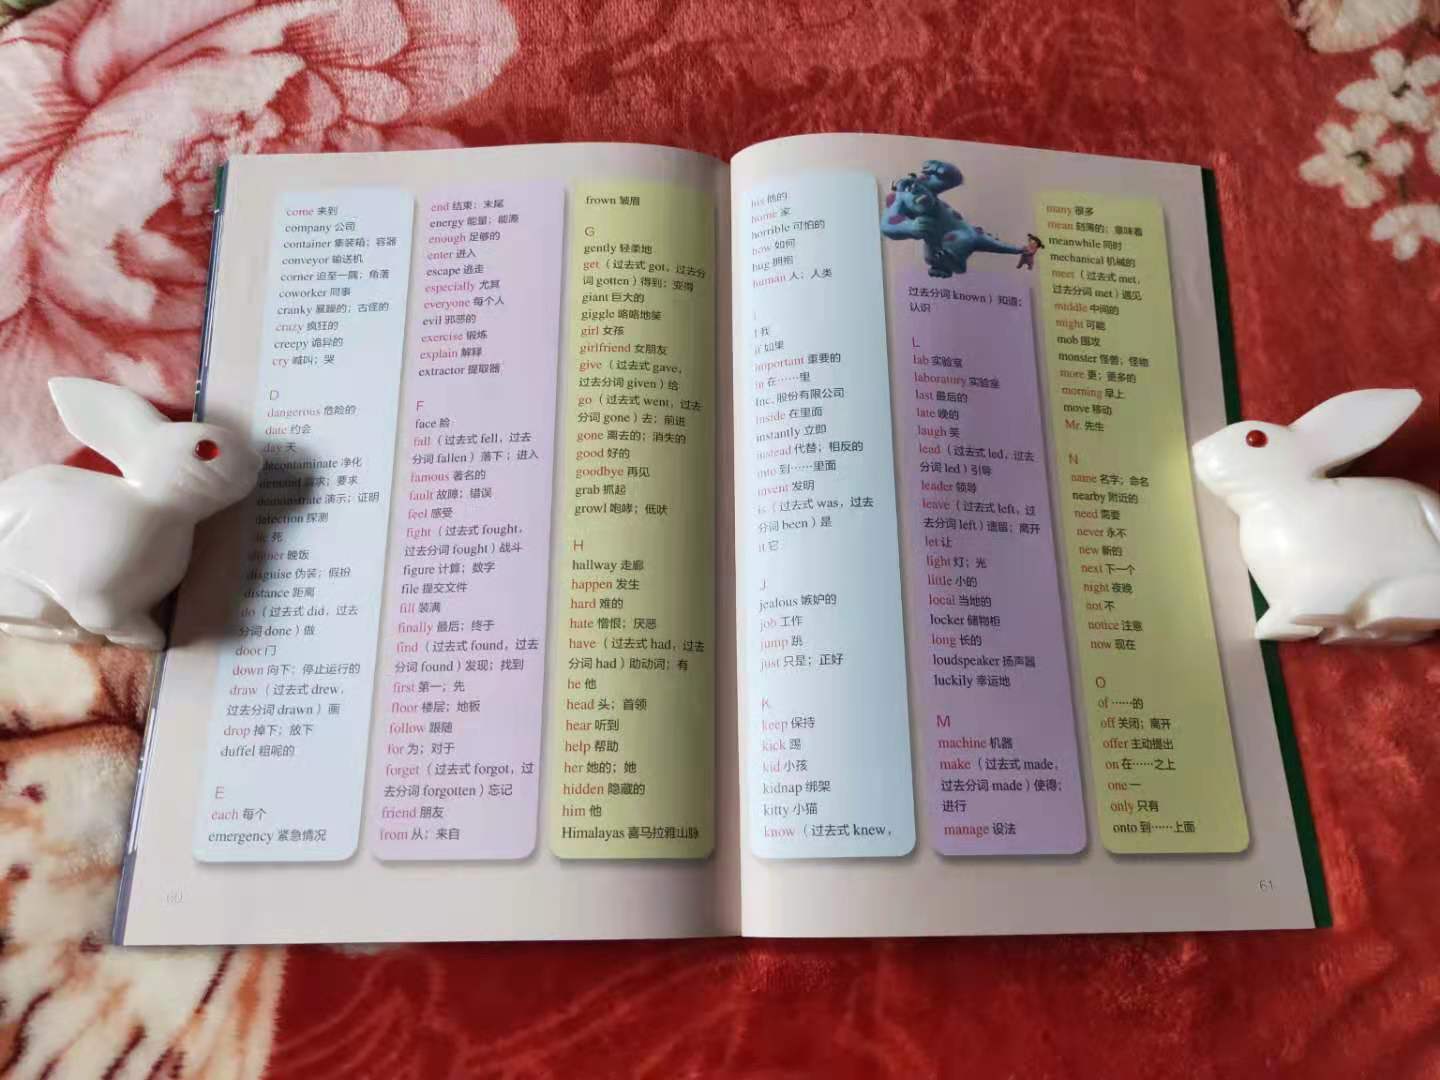 come 来到
company 公司
container 集装箱；容器
conveyor 输送机
corner 迫至一隅；角落
coworker 同事
cranky 暴躁的；古怪的
crazy 疯狂的
creepy 诡异的
cry 喊叫；哭
D
dangerous 危险的
date 约会
day 天
decontaminate 净化
需求；要求
demonstrate 演示；证明
detection 探测
死
dinner 晚饭
disguise 伪装；假扮
distance 距离
do（过去式 did，过去
分词 done）做
door 门
down 向下；停止运行的
draw（过去式 drew，
过去分词 drawn）画
drop 掉下；放下
duffel 粗呢的
E
each 每个
emergency 紧急情况
60
end 结束；末尾
energy 能量；能源
enough 足够的
enter 进入
escape 逃走
especially 尤其
everyone 每个人
evil 邪恶的
exercise 锻炼
explain 解释
extractor 提取器
F
face 脸
fall（过去式 fell，过去
分词 fallen）落下；进入
famous 著名的
fault 故障；错误
feel 感受
fight（过去式 fought，
过去分词 fought）战斗
figure 计算；数字
file 提交文件
fill 装满
finally 最后；终于
find（过去式 found，过去
分词 found）发现；找到
first 第一；先
floor 楼层；地板
follow 跟随
for 为；对于
forget（过去式 forgot，过
去分词 forgotten）忘记
friend 朋友
from 从；来自
frown 皱眉
G
gently 轻柔地
get（过去式 got，过去分
词 gotten）得到；变得
giant 巨大的
giggle 咯咯地笑
girl 女孩
girlfriend 女朋友
give（过去式 gave，
过去分词 given）给
go（过去式 went，过去
分词 gone）去；前进
gone 离去的；消失的
good 好的
goodbye 再见
grab 抓起
growl 咆哮；低吠
H
hallway 走廊
happen 发生
hard 难的
hate 憎恨；厌恶
have（过去式 had，过去
分词 had）助动词；有
he 他
head 头；首领
hear 听到
help 帮助
her 她的；她
hidden 隐藏的
him 他
Himalayas 喜马拉雅山脉
his 他的
home 家
horrible 可怕的
how 如何
hug 拥抱
human 人；人类
I
I 我
if 如果
important 重要的
in 在……里
Inc. 股份有限公司
inside 在里面
instantly 立即
instead 代替；相反的
into 到……里面
invent 发明
is（过去式 was，过去
分词 been）是
it 它
J
jealous 嫉妒的
job 工作
jump 跳
just 只是；正好
K
keep 保持
kick 踢
kid 小孩
kidnap 绑架
kitty 小猫
know（过去式 knew，
过去分词 known）知道；
认识
L
lab 实验室
laboratory 实验室
last 最后的
late 晚的
laugh 笑
lead（过去式 led，过去
分词 led）引导
leader 领导
leave（过去式 left，过
去分词 left）遗留；离开
let 让
light 灯；光
little 小的
local 当地的
locker 储物柜
long 长的
loudspeaker 扬声器
luckily 幸运地
M
machine 机器
make（过去式 made，
过去分词 made）使得；
进行
manage 设法
many 很多
mean 刻薄的；意味着
meanwhile 同时
mechanical 机械的
meet（过去式 met，
过去分词 met）遇见
middle 中间的
might 可能
mob 围攻
monster 怪兽；怪物
more 更；更多的
morning 早上
move 移动
Mr. 先生
N
name 名字；命名
nearby 附近的
need 需要
never 永不
new 新的
next 下一个
night 夜晚
not 不
notice 注意
now 现在
O
of ……的
off 关闭；离开
offer 主动提出
on 在……之上
one 一
only 只有
onto 到……上面
61